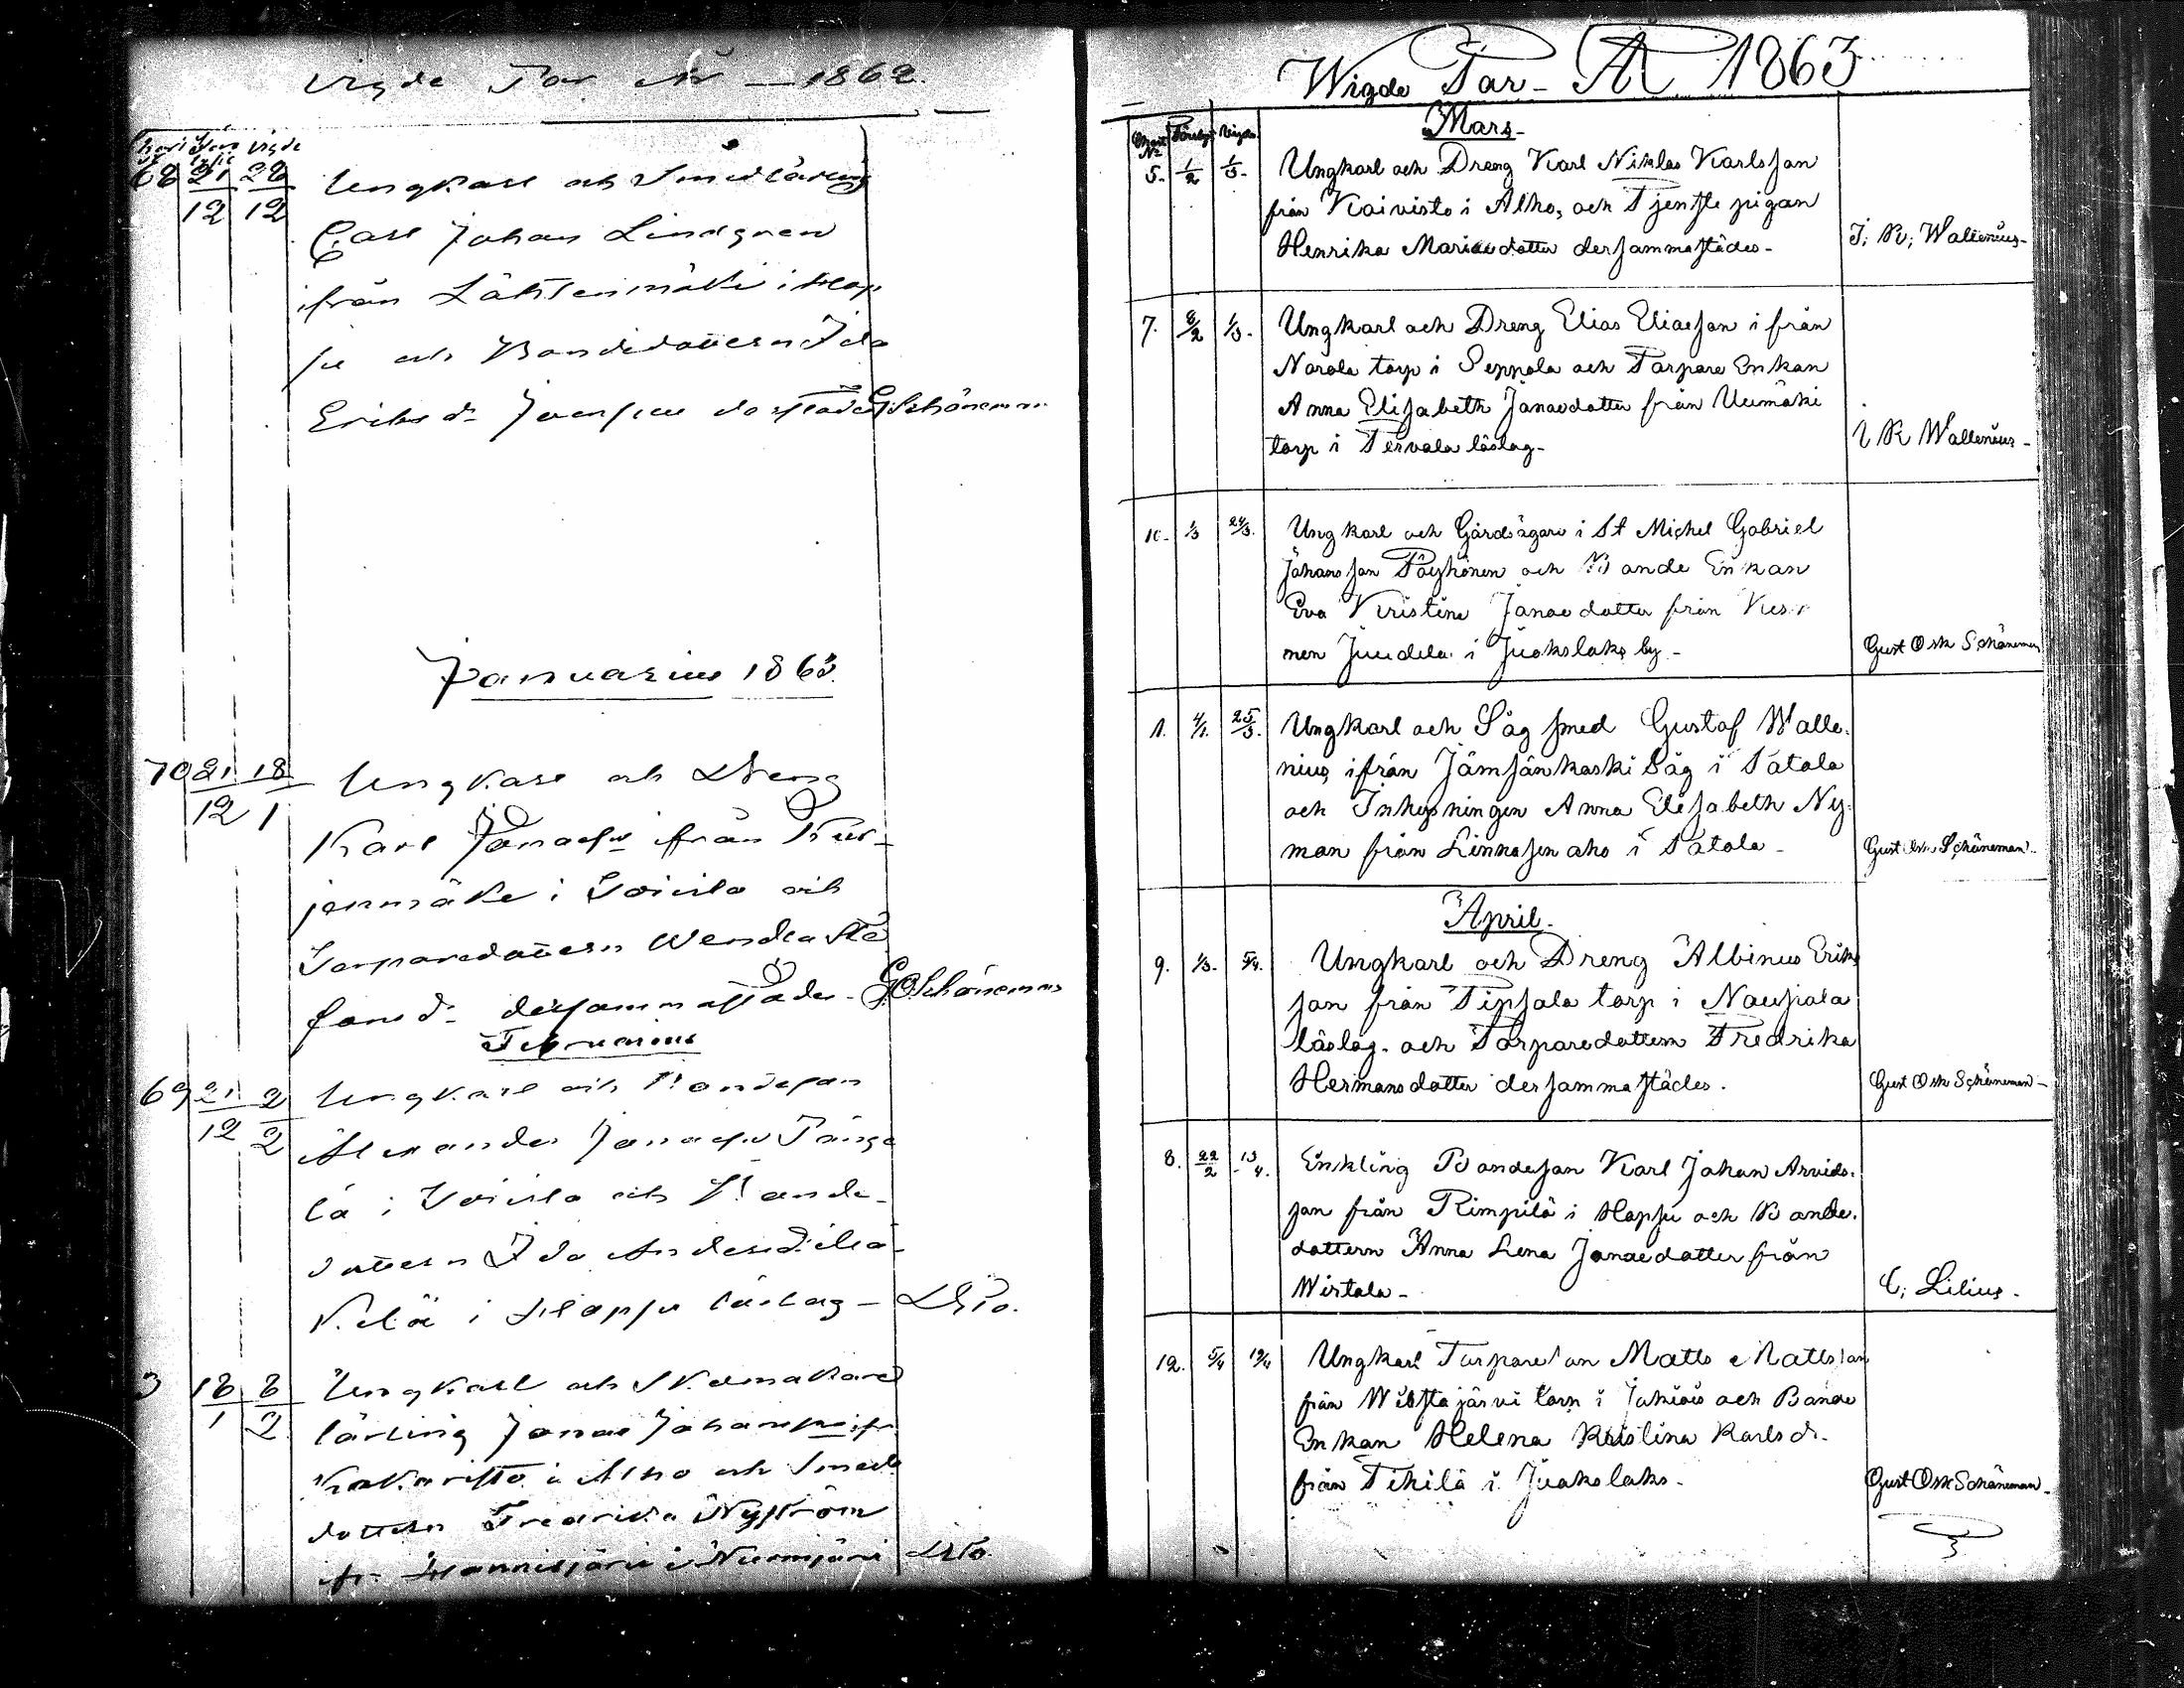 Vigde Par År — 1862.
68 21/12 28/12 Ungkarl och Smedlärling
Carl Johan Lindgren
ifrån Lähtenmäki i Hap
su och Bondedottern Ida
Eriksd:r G Schöneman
Januarius 1863.
70 21/12 18/1 Ungkarl och Dreng
Karl Jonass:n ifrån Kur-
jenmäki i Loisila och
Torparedottern Wendla Ste
fansd:r dersammastädes - G.O. Schöneman
Februarius
69 21/12 2/2 Ungkarl och Bondeson
Alexander Jonass:n
lä i Loisila och Bonde-
dottern Ida
Kelä i Happsu läslag - Dito.
3 18/1 8/2 Ungkarl och Skomakare
lärling Jonas Johanss:n ifr:
i Alho och Smeds
dottern Fredrika Nyström
ifr: i Nummjärvi Dito.
Wigde Par - År 1863
Mars
5. 1/2 1/3. Ungkarl och Dreng Karl Niklas Karlsson
från Koivisto i Alho, och Tjenste pigan
Henrika Mariaedotter dersammastädes - J. R. Wallenius -
7. 8/2 1/3. Ungkarl och Dreng Elias Eliaeson i från
Narola torp i Seppola och Torpare Enkan
Anna Elisabeth Jonaedotter från Uumäki
torp i Tervala läslag - J R Wallenius -
10. 1/3 24/3. Ung karl och Gårdsägare i St Michel Gabriel
Johansson Pöyhönen och Bonde Enkan
Eva Kristina Jonaedotter från
nen Juudila i Juokslaks by - Gust Osk Schöneman
1. 4/1. 25/3. Ungkarl och Såg smed Gustaf Walle-
nius ifrån Jämsänkoski Såg i Patala
och Inhysningen Anna Elisabeth Ny-
man från Linnasenaho i Patala - Gust Osk Schöneman
April
9. 1/3. 5/4. Ungkarl och Dreng Albinus Eriks
son från Tipsala torp i Naupala
läslag. och Torparedottern Fredrika
Hermansdotter dersammastädes. Gust Osk Schöneman -
8. 22/2 13/4. Enkling Bondeson Karl Johan Arvids-
son från Rimpilä i Hapsu och Bonde-
dottern Anna Lena Jonaedotter från
Wirtala - C. Lilius.
12. 5/4 19/4 Ungkarl Torpareson Matts Mattsson
från järvi torp i Jokiois och Bonde
Enkan Helena Kristina Karlsdr.
från Tihilä i Juokslaks - Gust Osk Schöneman -